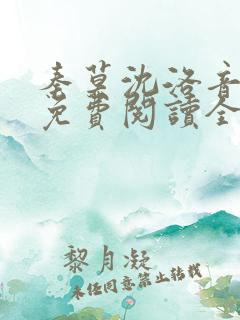 秦草沈洛音
免費閱讀全
黎月凝
未經同意禁止轉載